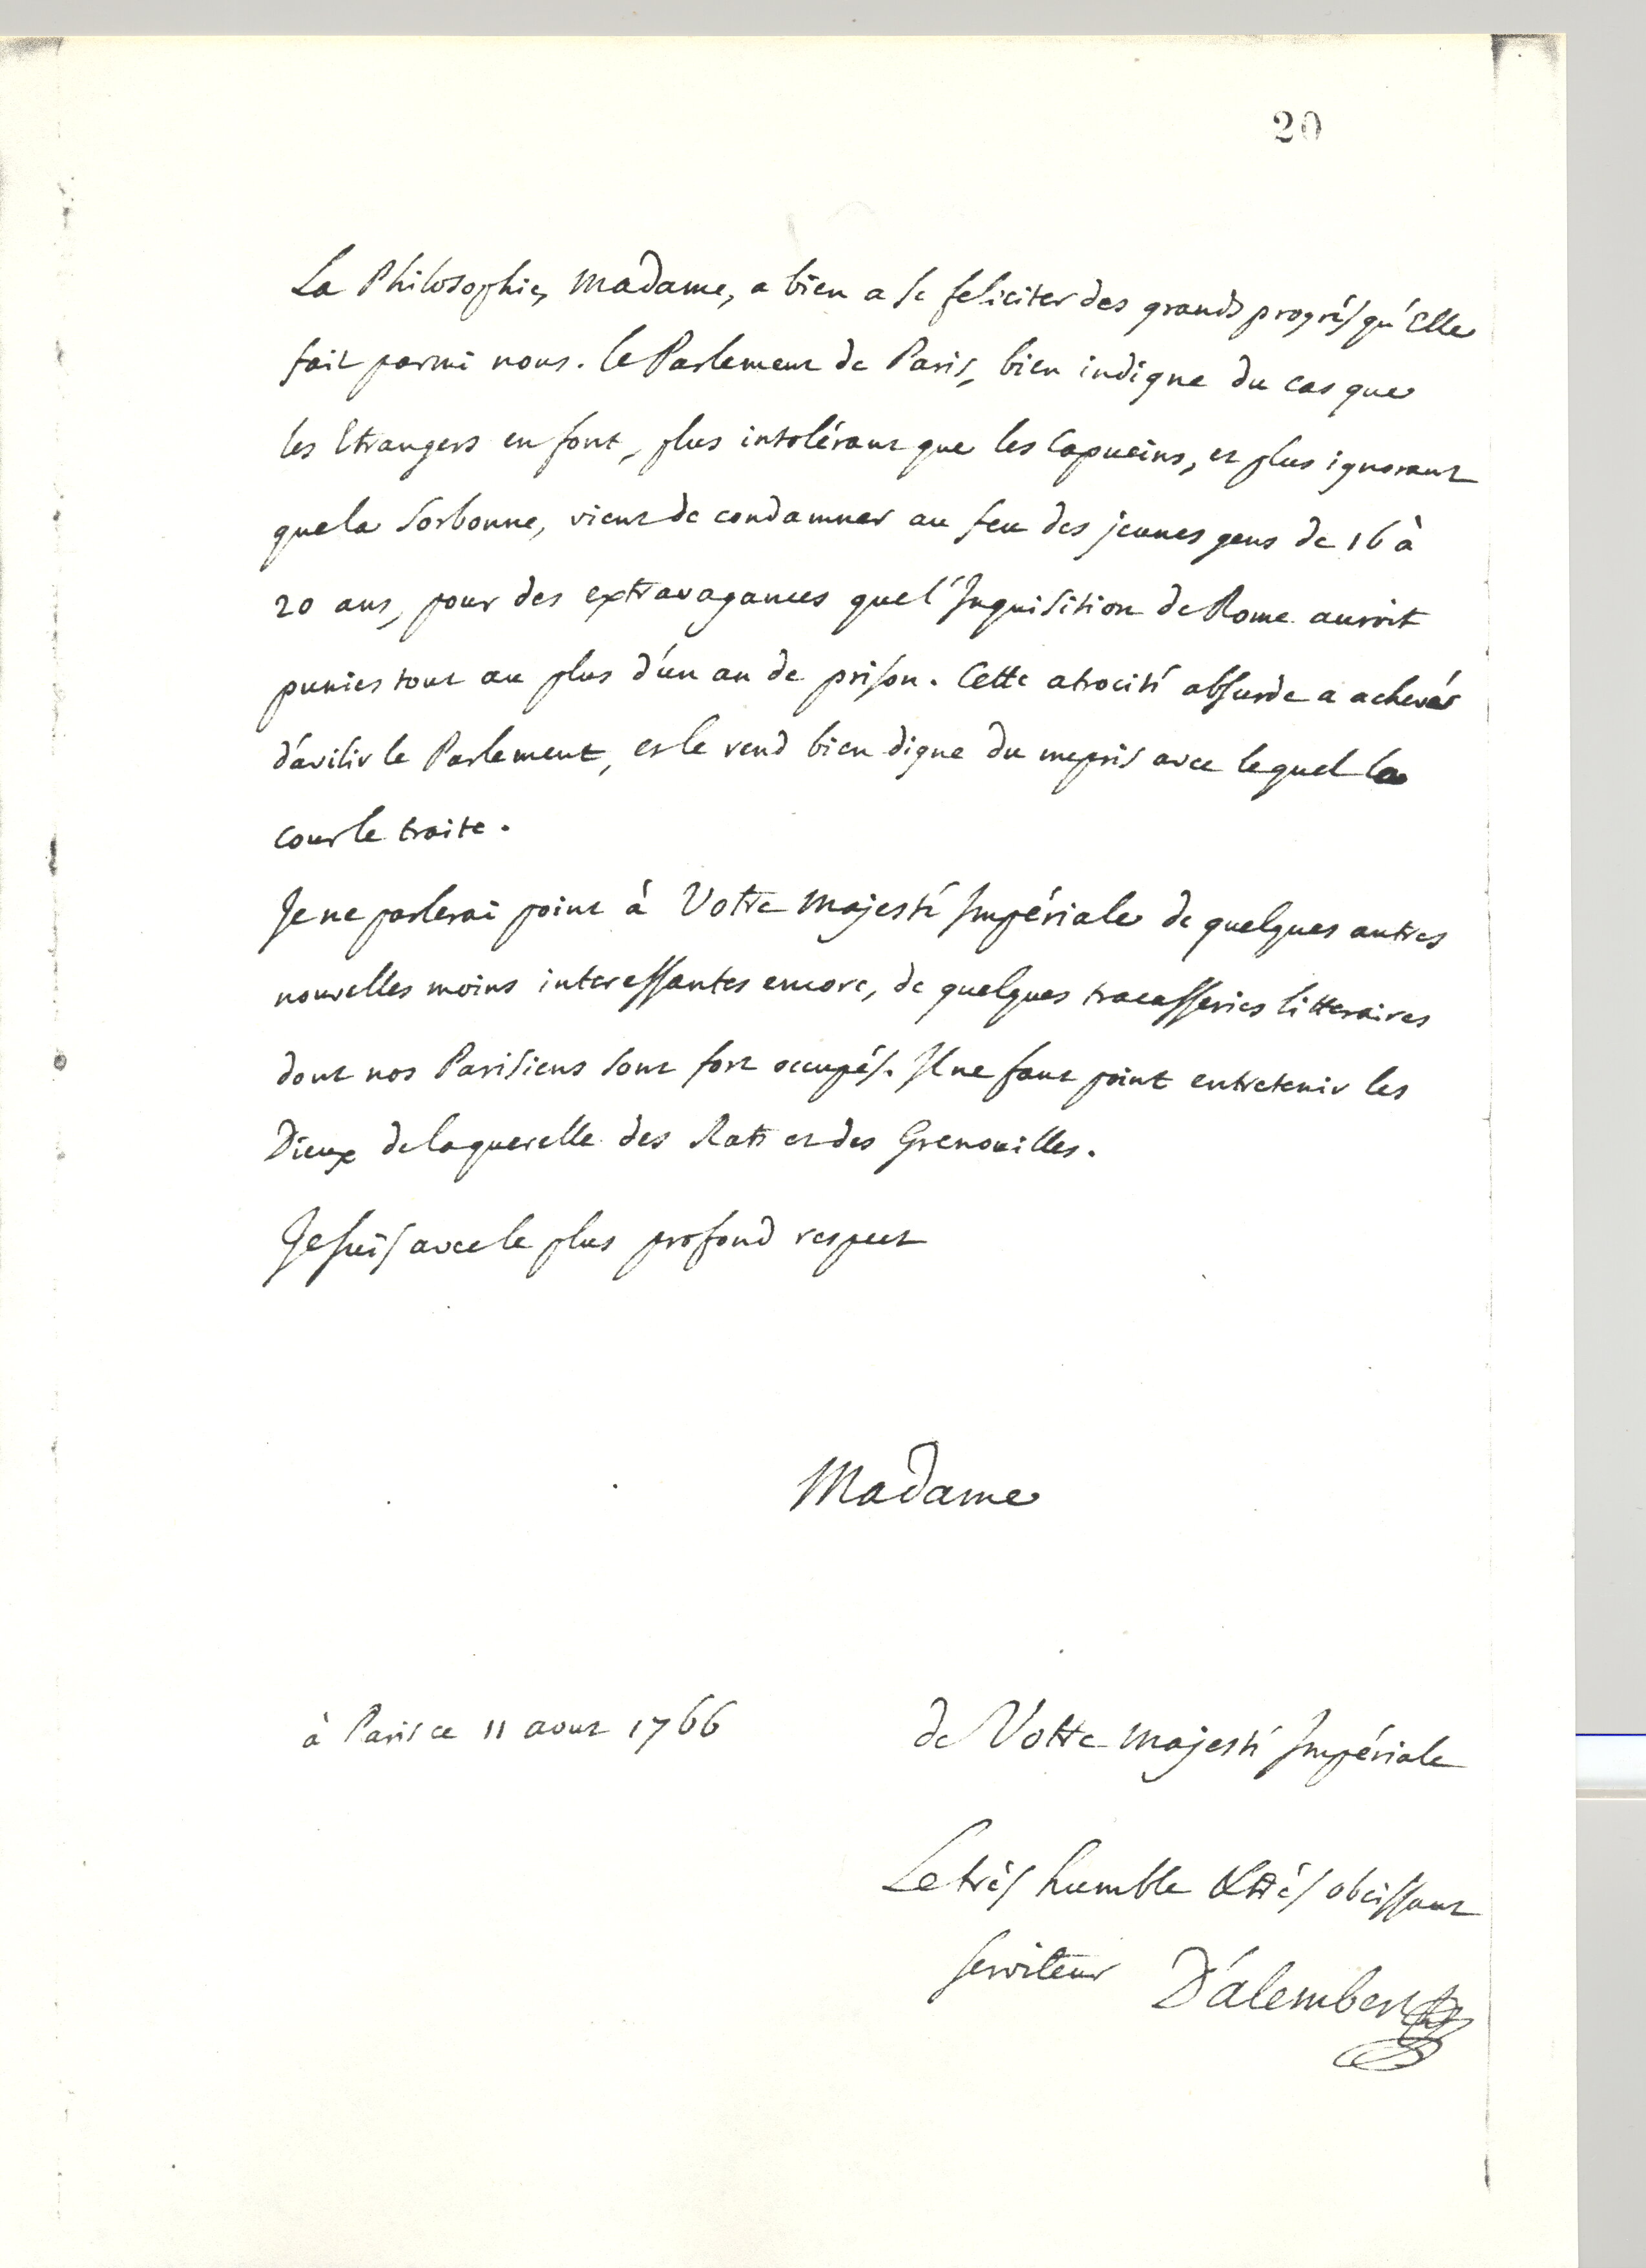 20
La Philosophie, Madame, a bien a se feliciter des grands progrès qu'Elle
fait parmi nous. le Parlement de Paris, bien indigne du cas que
les Etrangers en font, plus intolérant que les Capucins, et plus ignorant
que la Sorbonne, vient de condamner au feu des jeunes gens de 16 à
20 ans, pour des extravagances que l'Inquisition de Rome auroit
punies tout au plus d'un an de prison. Cette atrocité absurde a achevé
d'avilir le Parlement, et le rend bien digne du mepris avec lequel la
cour le traite.
Je ne parlerai point à Votre Majesté Impériale de quelques autres
nouvelles moins interessantes encore, de quelques tracasseries litteraires
dont nos Parisiens sont fort occupés. Il ne faut point entretenir les
Dieux de la querelle des Rats et des Grenouilles.
Je suis avec le plus profond respect
Madame
à Paris ce 11 aout 1766
de Votre Majesté Impériale
Le très humble & très obeissant
serviteur D'alembert